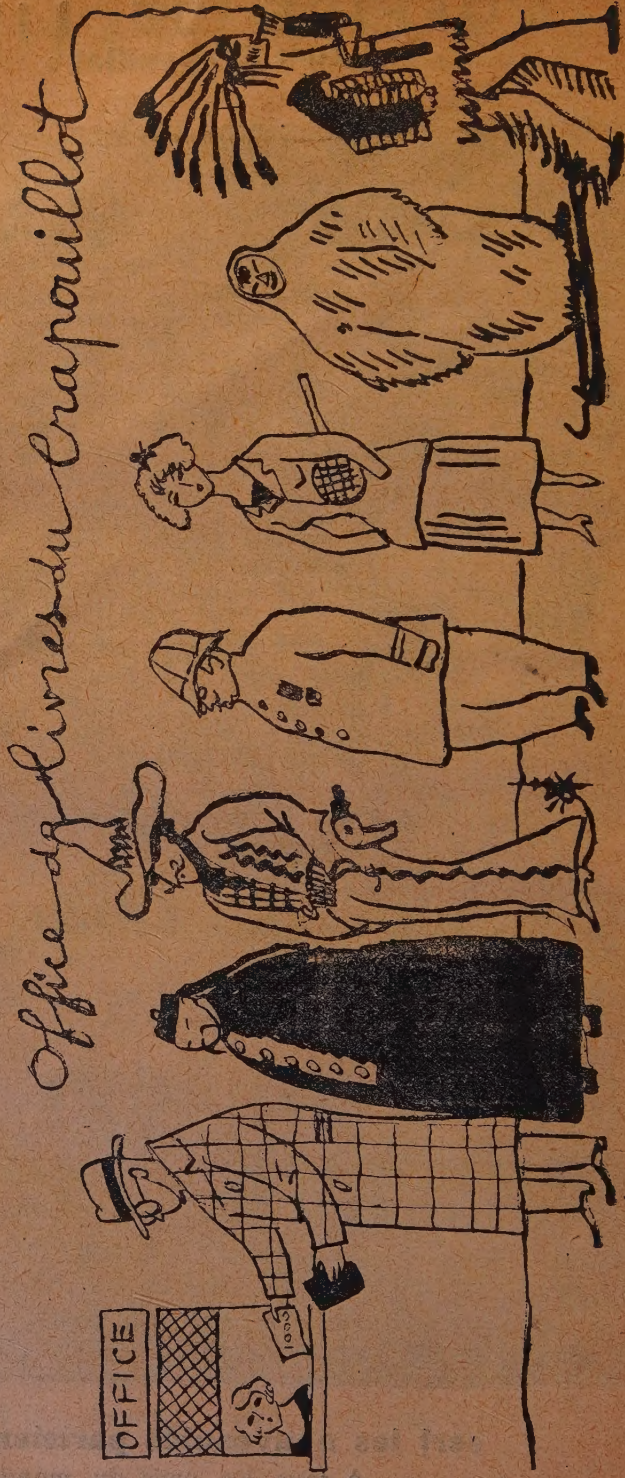 Office de livres du Crapouillot
OFFICE
1000